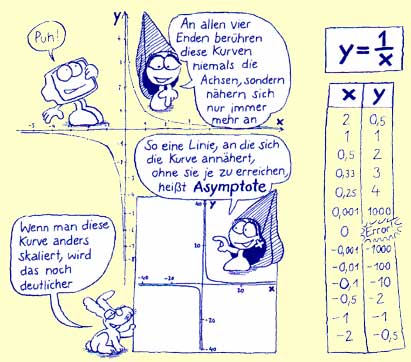 Puh!
y
An allen vier
Enden berühren
diese Kurven
niemals die
Achsen, sondern
nähern sich
nur immer
mehr an
x
So eine Linie, an die sich
die Kurve annähert,
ohne sie je zu erreichen,
heißt Asymptote
Wenn man diese
Kurve anders
skaliert, wird
das noch
deutlicher
y
40
-40 -20
20
x
-20
-40
y = 1/x
x y
2 0,5
1 1
0,5 2
0,33 3
0,25 4
0,001 1000
0 Error
-0,001 -1000
-0,01 -100
-0,1 -10
-0,5 -2
-1 -1
-2 -0,5